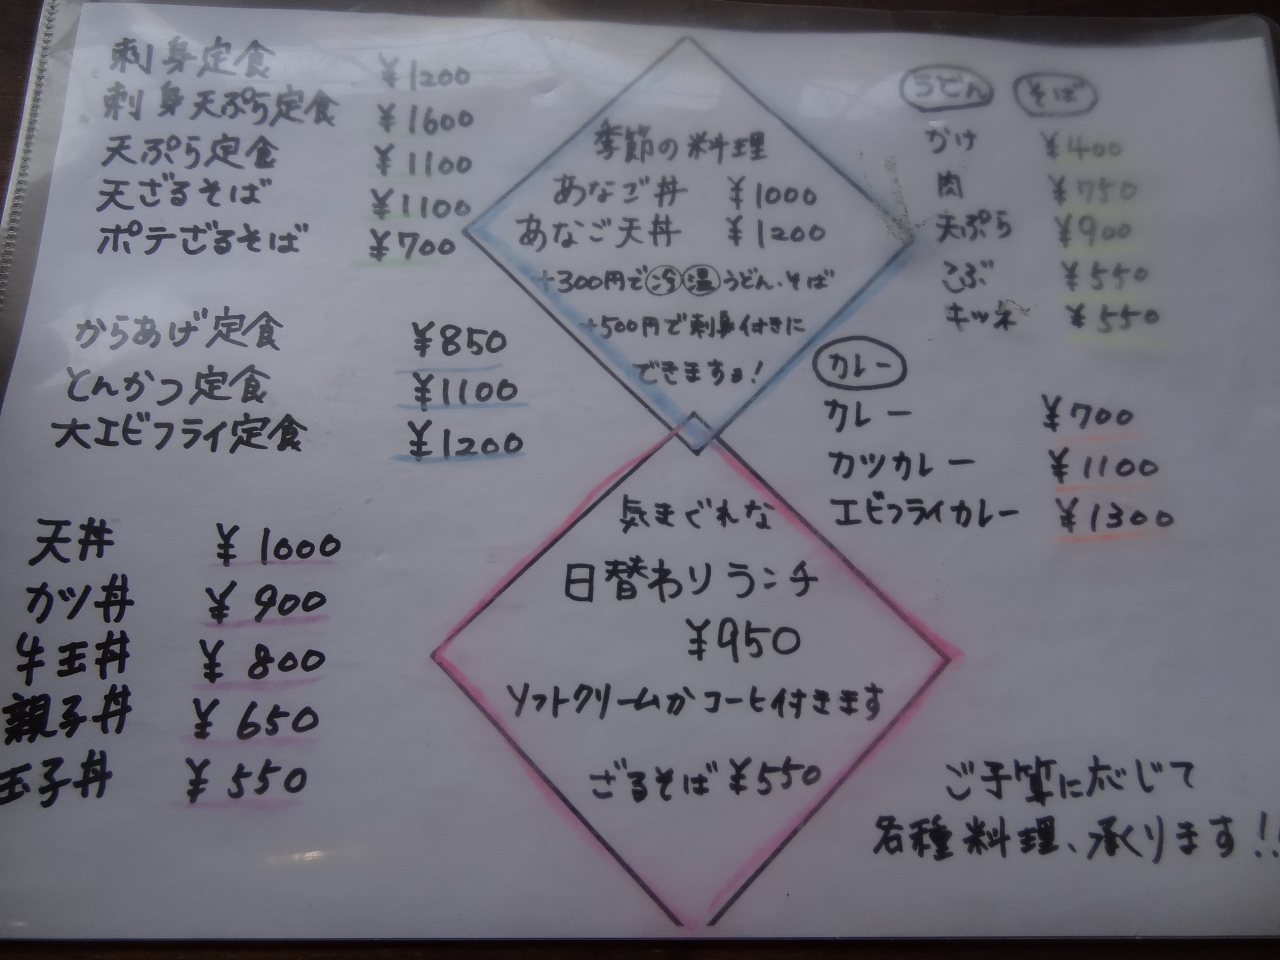 刺身定食 ¥1200
刺身天ぷら定食 ¥1600
天ぷら定食 ¥1100
天ざるそば ¥1100
ポテざるそば ¥700
からあげ定食 ¥850
とんかつ定食 ¥1100
大エビフライ定食 ¥1200
天丼 ¥1000
カツ丼 ¥900
牛玉丼 ¥800
親子丼 ¥650
玉子丼 ¥550
季節の料理
あなご丼 ¥1000
あなご天丼 ¥1200
+300円で冷温うどん、そば
+500円で刺身付きに
できますョ!
気まぐれな
日替わりランチ
¥950
ソフトクリームかコーヒ付きます
ざるそば ¥550
うどん そば
かけ ¥400
肉 ¥750
天ぷら ¥900
こぶ ¥550
キツネ ¥550
カレー
カレー ¥700
カツカレー ¥1100
エビフライカレー ¥1300
ご予算に応じて
各種料理、承ります!!